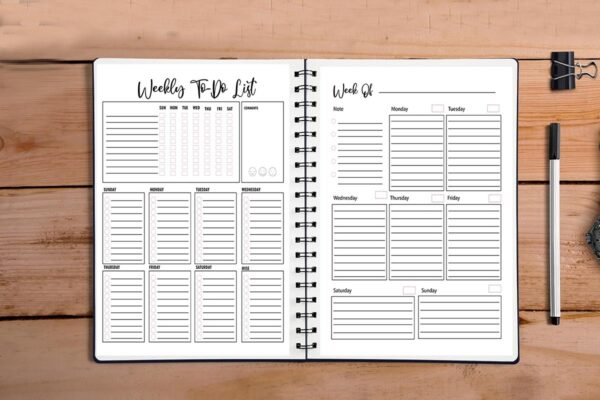 Weekly To-Do List
SUN MON TUE WED THU FRI SAT
COMMENTS
SUNDAY MONDAY TUESDAY WEDNESDAY
THURSDAY FRIDAY SATURDAY
Week Of
Note Monday Tuesday
Wednesday Thursday Friday
Saturday Sunday